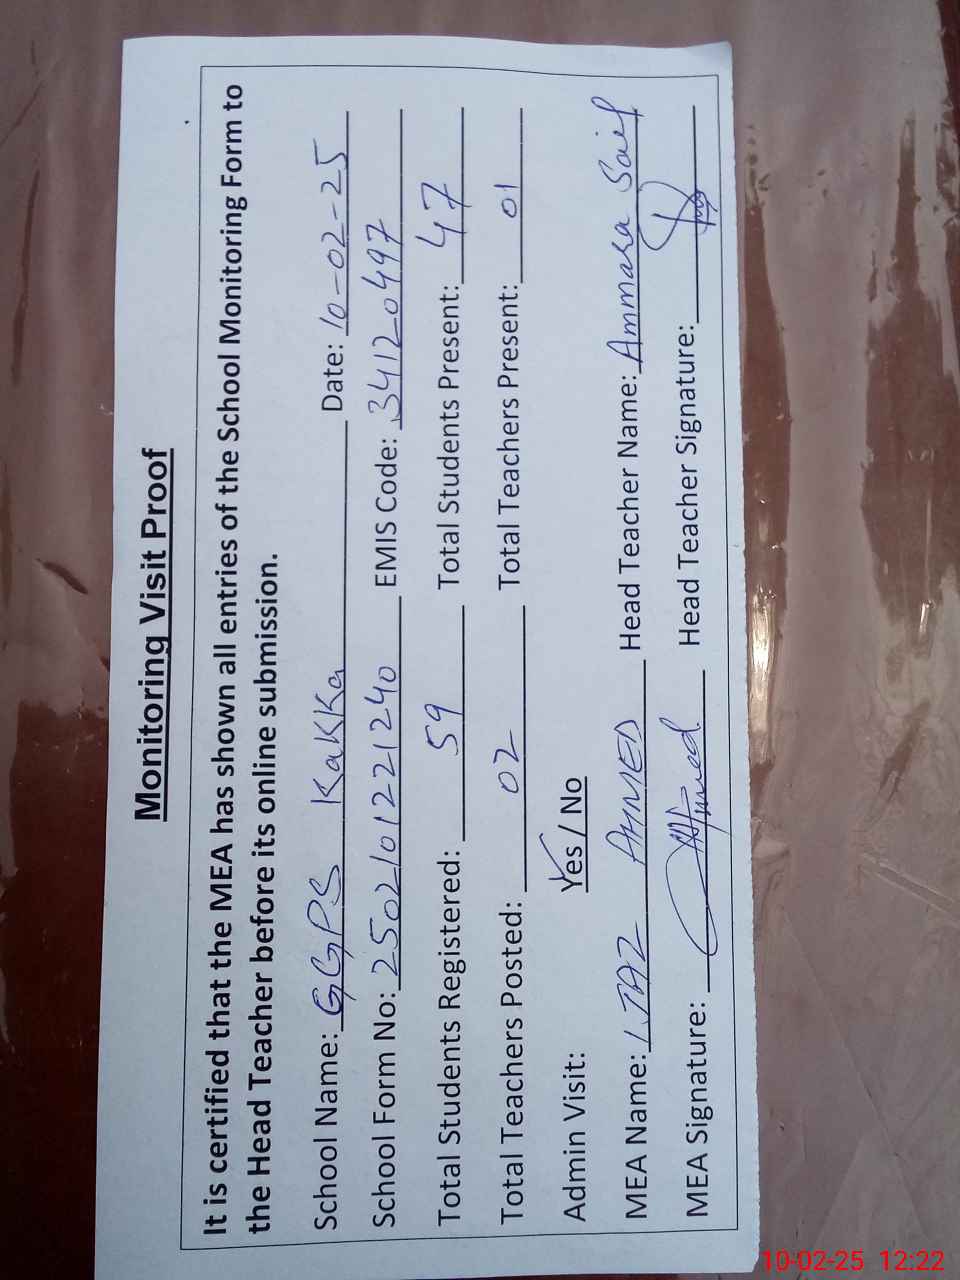 Monitoring Visit Proof
It is certified that the MEA has shown all entries of the School Monitoring Form to
the Head Teacher before its online submission.
School Name: GGPS KaKKa Date: 10-02-25
School Form No: 2502101221240 EMIS Code: 34120497
Total Students Registered: 59 Total Students Present: 47
Total Teachers Posted: 02 Total Teachers Present: 01
Admin Visit: Yes / No
MEA Name: IJAZ AHMED Head Teacher Name: Ammara Saif
MEA Signature: Ahmed Head Teacher Signature:
10-02-25 12:22